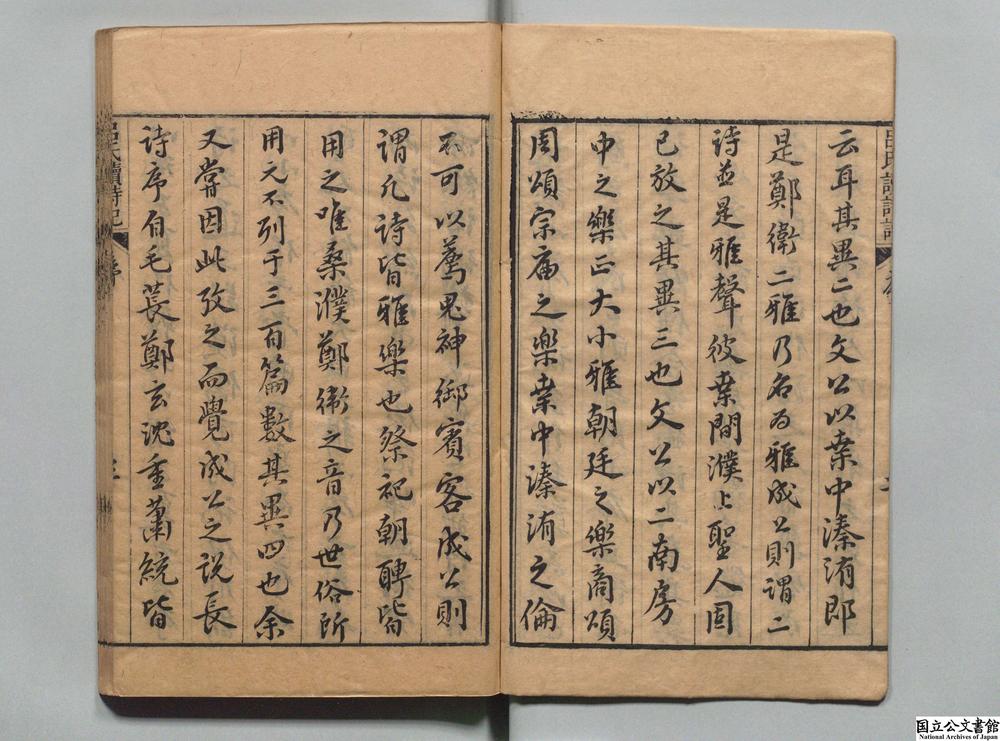 云耳其異二也文公以桒中溱洧郎
是鄭衛二雅乃名為雅成公則謂二
詩並是雅聲彼桒間濮上聖人固
已放之其異三也文公以二南房
中之樂正大小雅朝廷之樂商頌
周頌宗庙之樂桒中溱洧之倫
不可以薦鬼神御賓客成公則
謂凡詩皆雅樂也祭祀朝聘皆
用之唯桑濮鄭衛之音乃世俗所
用元不列于三百篇數其異四也余
又嘗因此攷之而覺成公之説長
詩序自毛萇鄭玄沈重蕭統皆
呂氏讀詩記
序
三
国立公文書館
National Archives of Japan